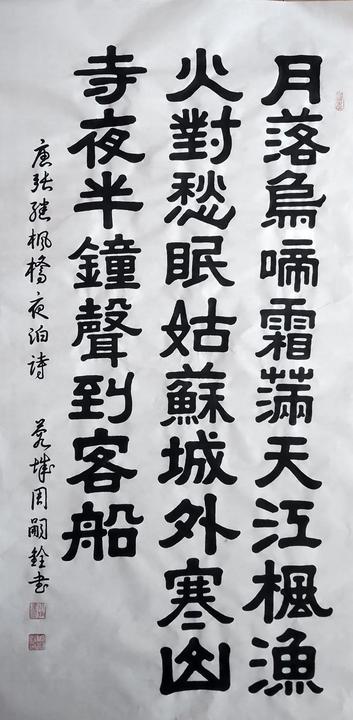 月落烏啼霜滿天江楓漁
火對愁眠姑蘇城外寒山
寺夜半鐘聲到客船
唐張繼楓橋夜泊詩 蓉城周嗣銓書